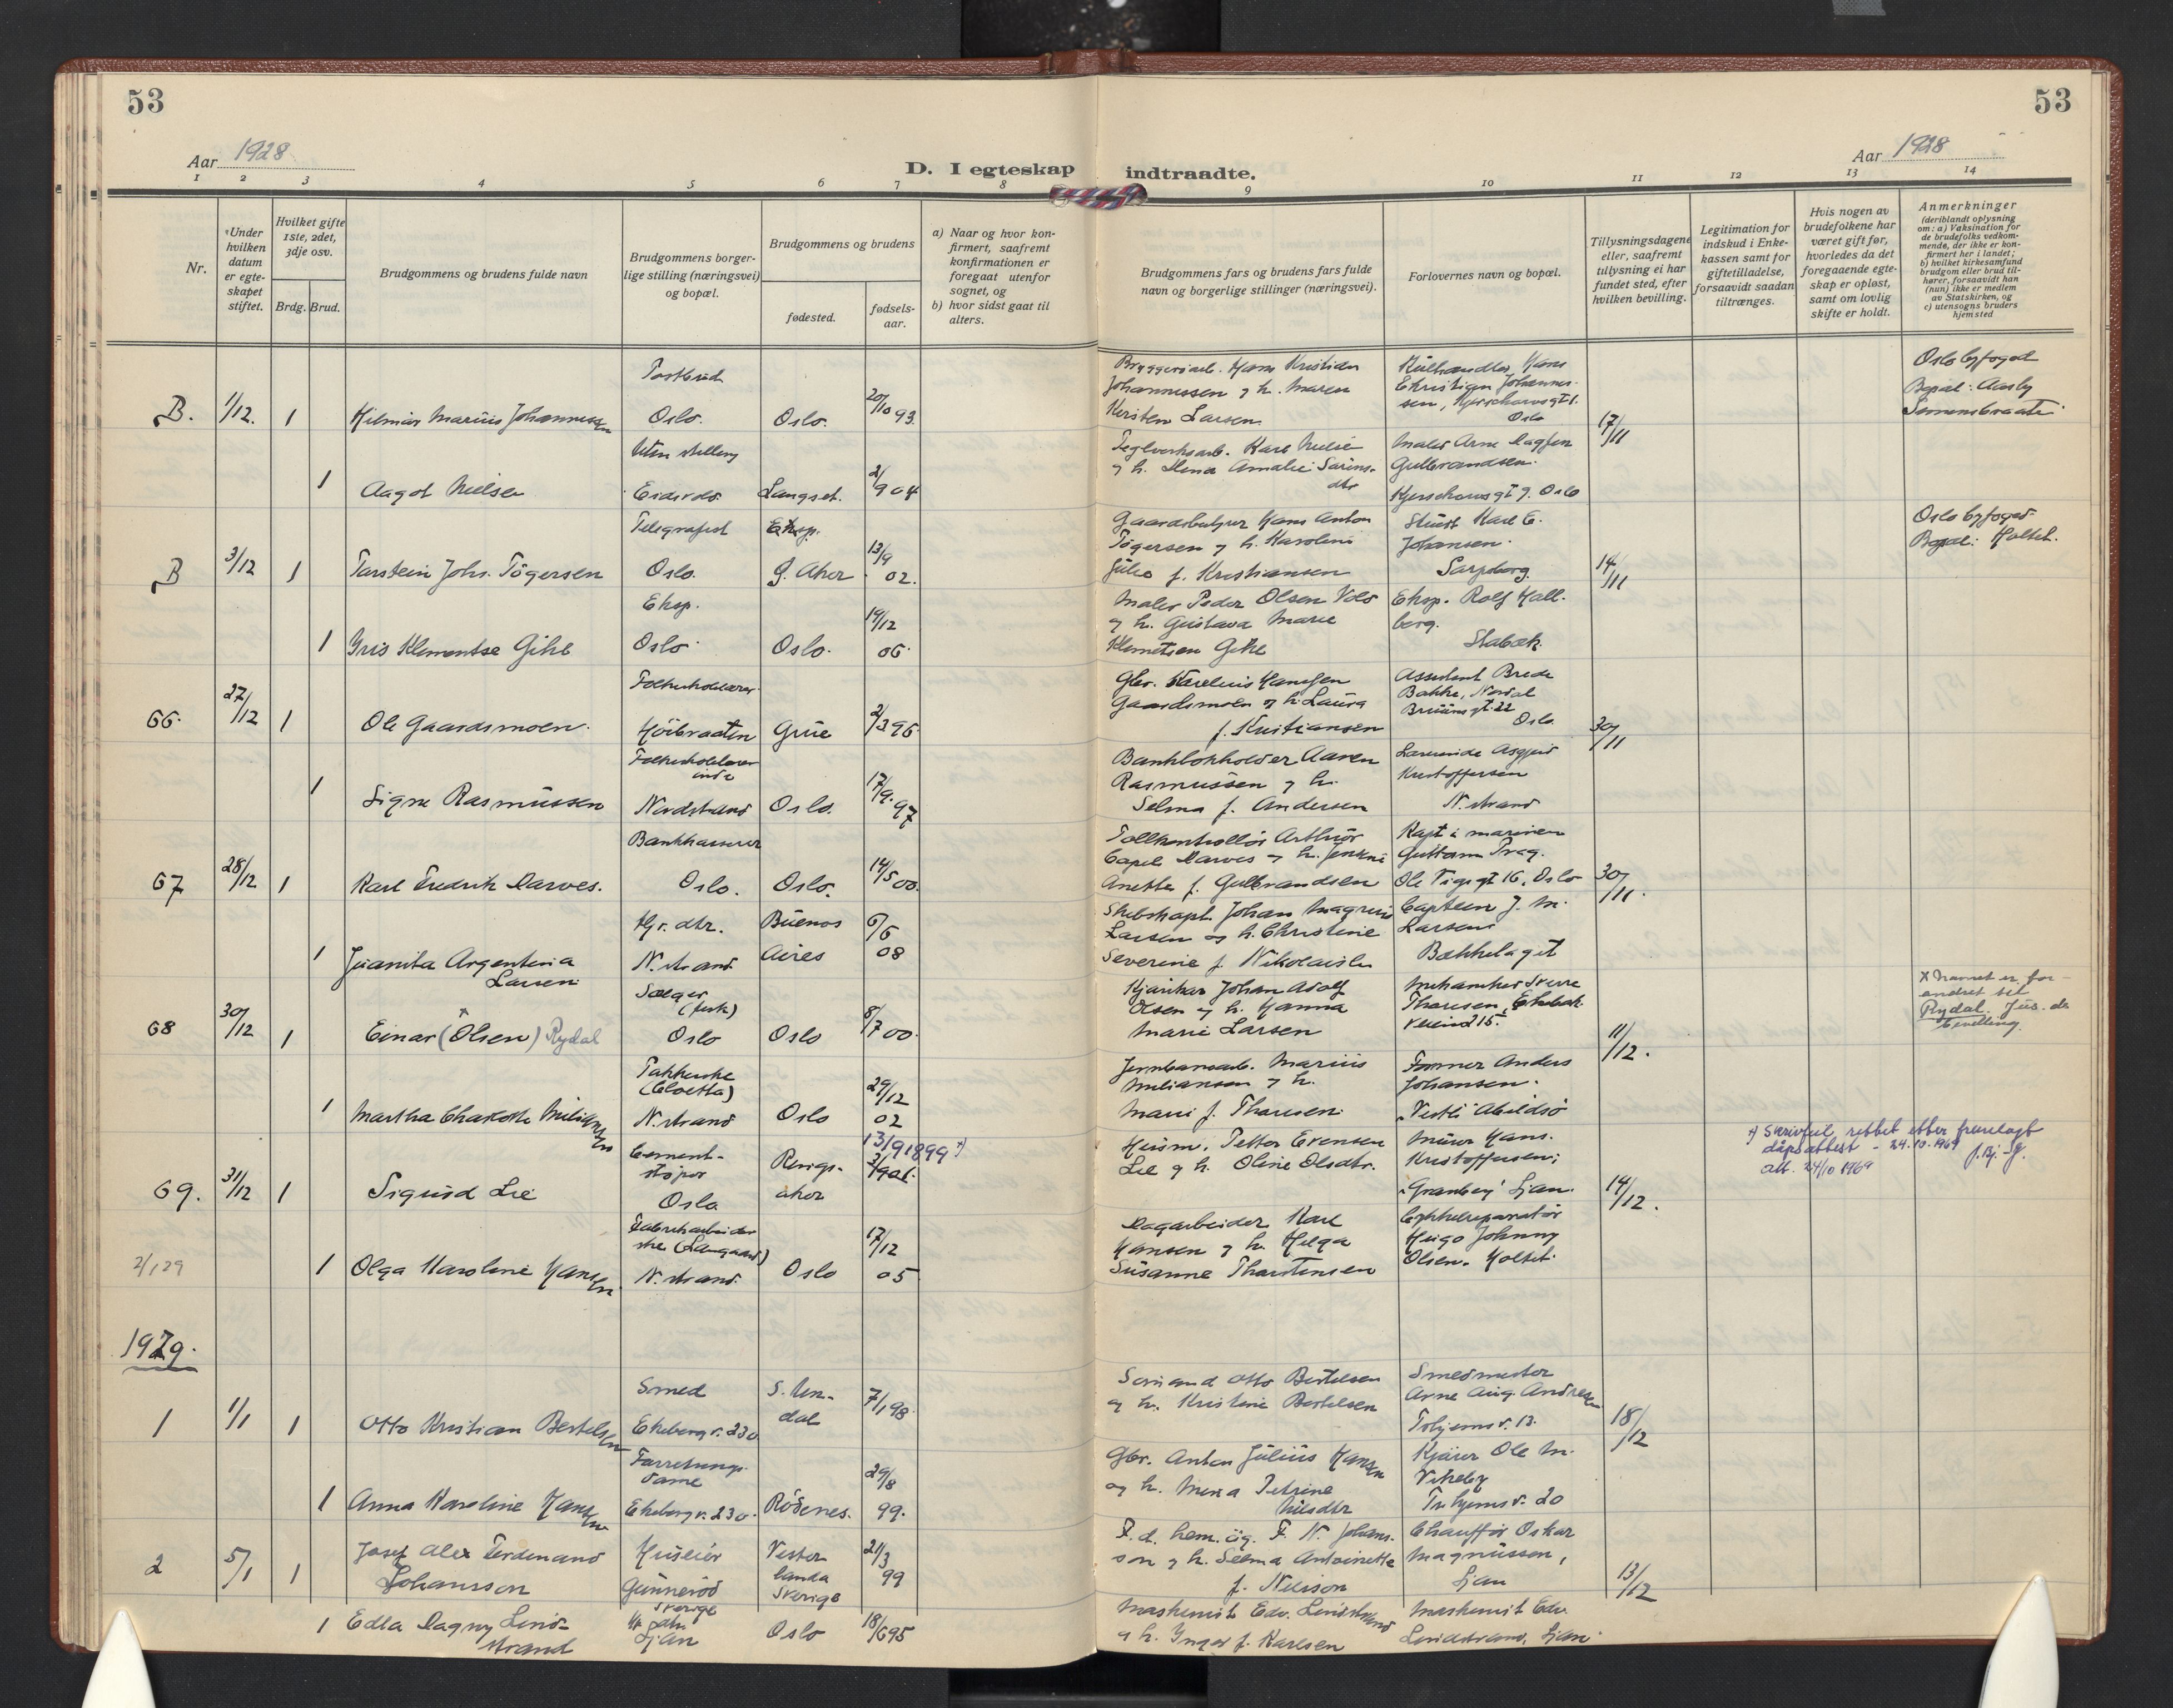 53
53
Aar 1928
D. I egteskap
indtraadte.
Aar 1928
1 2 3 4 5 6 7 8 9 10 11 12 13 14
Nr.
Under hvilken datum er egteskapet stiftet.
Hvilket gifte 1ste, 2det, 3dje osv.
Brdg. Brud.
Brudgommens og brudens fulde navn
Brudgommens borgerlige stilling (næringsvei) og bopæl.
Brudgommens og brudens
fødested.
fødselsaar.
a) Naar og hvor konfirmert, saafremt konfirmationen er foregaat utenfor sognet, og
b) hvor sidst gaat til alters.
Brudgommens fars og brudens fars fulde navn og borgerlige stillinger (næringsvei).
Forlovernes navn og bopæl.
Tillysningsdagene eller, saafremt tillysning ei har fundet sted, efter hvilken bevilling.
Legitimation for indskud i Enkekassen samt for giftetilladelse, forsaavidt saadan tiltrænges.
Hvis nogen av brudefolkene har været gift før, hvorledes da det foregaaende egteskap er opløst, samt om lovlig skifte er holdt.
Anmerkninger
(deriblandt oplysning om: a) Vaksination for de brudefolks vedkommende, der ikke er konfirmert her i landet;
b) hvilket kirkesamfund brudgom eller brud tilhører, forsaavidt han (hun) ikke er medlem av Statskirken, og
c) utensogns bruders hjemsted
B. 1/12. 1 Hilmar Marius Johannessen
Postbud
Oslo. Oslo. 20/10 93
Bryggeriarb. Hans Kristian
Johannessen og h. Maren
Kirsten Larsen
Kulhandler Hans
Christian Johannessen,
Oslo
17/11
Oslo byfogd
Bopæl: Aasly
Simensbraaten
1 Aagot Nielsen
Uten stilling
Eidsvold Langset. 2/9 04
Teglverksarb. Karl Nielsen
og h. Lina Amalie Sørensdtr
Maler Arne Dagfin
Gulbrandsen.
Kjerschowsgt 9. Oslo
B 3/12 1 Torstein Johs. Tögersen
Telegrafist
Oslo. Ø. Aker 13/9 02.
Gaardsbestyrer Hans Anton
Tögersen og h. Karoline
Julie f. Kristiansen
Karl E.
Johansen.
Sarpsborg.
14/11
Oslo byfoged
Bopæl: Holtet.
1 Iris Klementse Gihle
Eksp.
Oslo Oslo. 19/12 06
Maler Peder Olsen Vold
og h. Gustava Marie
Klemetsen Gihle
Eksp. Rolf Hallberg.
Stabæk.
66. 27/12 1 Ole Gaardsmoen.
Folkeskolelærer
Höibraaten Grue 2/3 96
Gbr. Hansen
Gaardsmoen og h. Laura
f. Kristiansen
Assistent Brede
Bakke, Nordal
Brunsgt. 22
Oslo
30/11
1 Signe Rasmussen
Folkeskolelærerinde
Nordstrand Oslo. 17/9. 97
Bankbokholder Aaren
Rasmussen og h.
Selma f. Andersen
Lærerinde Asgjerd
Kristoffersen
N. strand
67 28/12 1 Karl Fredrik Darves.
Bankkasserer
Oslo. Oslo. 14/5 00.
Tollkontrollör Arthur
Capel Darves og h. Jenkine
Anette f. Gulbrandsen
Kapt i marinen
Guttorm Prag.
Ole Vigsgt 16, Oslo
30/11.
1 Juanita Argentina
Larsen
Hr. dtr.
N. strand Buenos Aires 6/6 08
Skibskapt. Johan Magnus
Larsen og h. Christine
Severine f. Nikolaisen
Capteen J. M.
Larsen
Bækkelaget
68 30/12 1 Einar (Olsen) Rydal
Sælger
(fisk)
Oslo Oslo 8/7 00.
Johan Adolf
Olsen og h. Hanna
Marie Larsen
Mekaniker Sverre
Thoresen, Ekebak
veien 215.
11/12.
x Navnet er forandret til
Rydal. Jus. d.s
bevilling
1 Martha Charlotte Miliansen
Pakkerske
(Cloetta)
N. strand Oslo 29/12 02
Jernbanearb. Marius
Miliansen og h.
Marie f. Thoresen
Former Anders
Johansen.
"Vestli" Abildsö
69. 31/12 1 Sigurd Lie
Cementstöper
Oslo Ringsaker 13/9 1899 x)
Husm. Petter Evensen
Lie og h. Oline Olsdtr.
Murer Hans.
Kristoffersen;
"Granberg" Ljan.
14/12.
x) Skrivfeil, rettet etter fremlagt
dåpsattest - 24.10.1969
att. 24/10 1969
2/1 29 1 Olga Karoline Hansen
Fabrikarbeiderske (Langaard)
N. strand. Oslo 17/12 05
Dagarbeider Karl
Hansen og h. Helga
Susanne Thorstensen
Cykkelreparatör
Hugo Johnny
Olsen. Holtet
1929.
1 1/1 1 Otto Kristian Bertelsen
Smed
Ekeberg v. 230 S. Undal 7/1 98.
Sömand Otto Bertelsen
og h. Kristine Bertelsen
Smedmester
Arne Aug. Andresen
v. 13.
18/12
1 Anna Karoline Hansen
Forretningsdame
Ekeberg v. 230. Rödenes. 29/8 99.
Gbr. Anton Julius Hansen
og h. Mina Petrine
Nilsdtr
Kjörer Ole M.
Vikeby
v. 20
2 5/1 1 Josef Alex Ferdinand
Johansson
Huseier
Gunneröd
Sverige Vesterlanda Sverige 21/3 99
F. d. hem. äg. F. N. Johansson og h. Selma Antoinette
f. Nilsson
Chaufför Oskar
Magnussen,
Ljan
13/12
1 Edla Dagny Lindstrand
Ljan Oslo 18/6 95
Maskinist Edv. Lindstrand
og h. Inga f. Karlsen
Maskinist Edv.
Lindstrand, Ljan.